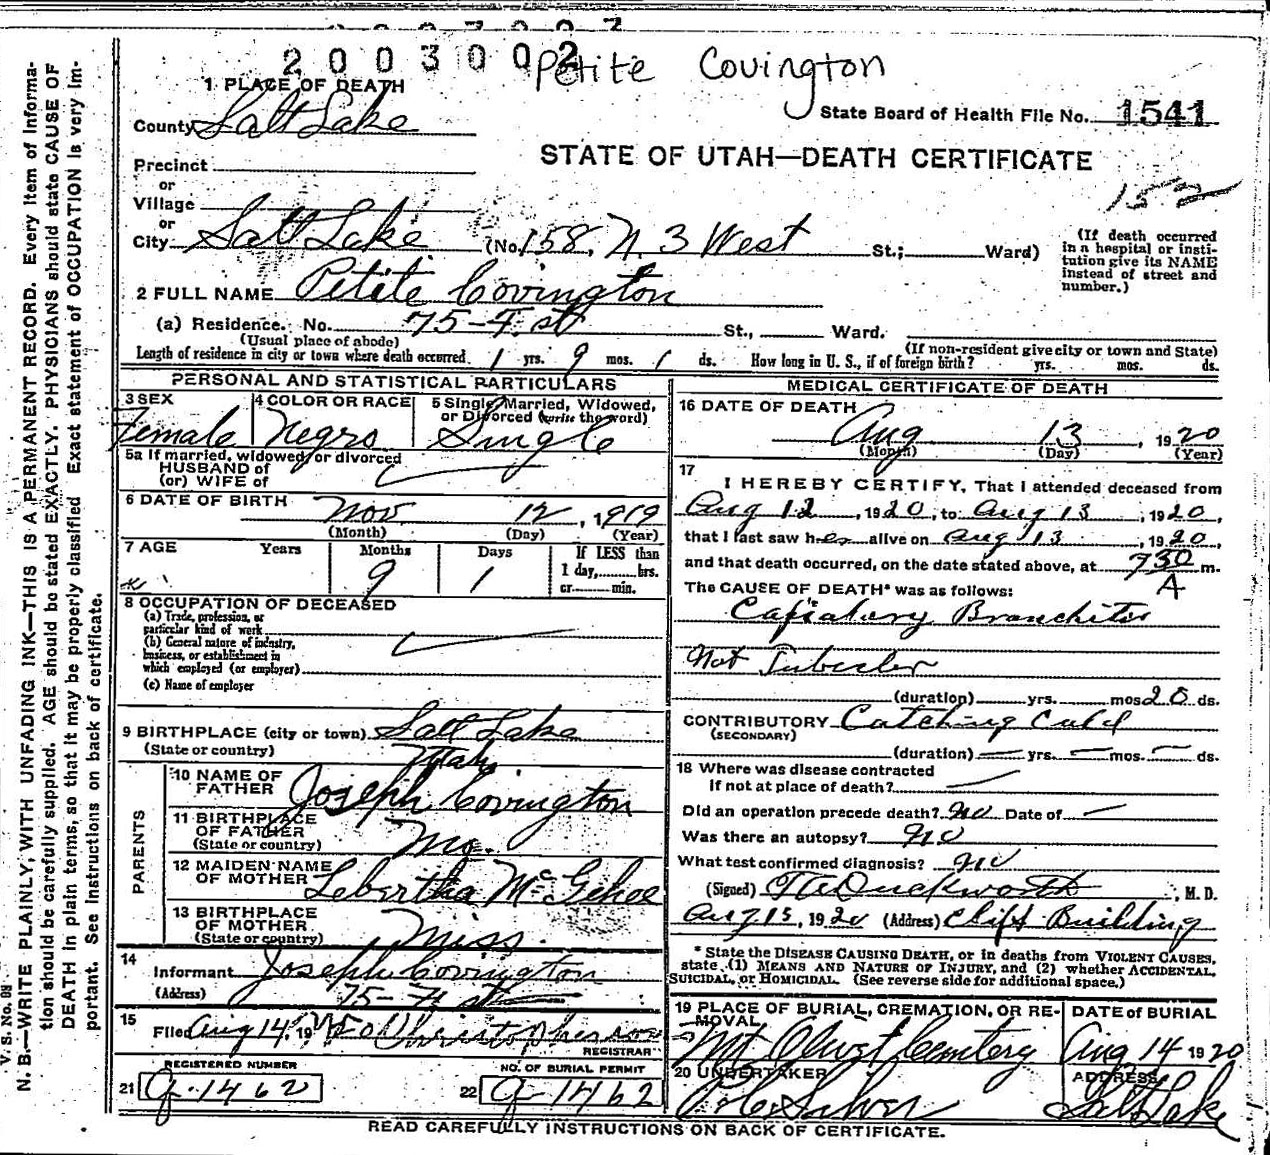 2003002
Petite Covington
1 PLACE OF DEATH
County Salt Lake
State Board of Health File No. 1541
STATE OF UTAH—DEATH CERTIFICATE
Precinct
or
Village
152
or
City Salt Lake (No. 158, N. 3 West St.; Ward)
(If death occurred in a hospital or institution give its NAME instead of street and number.)
2 FULL NAME Petite Covington
(a) Residence. No. 75-F. st St., Ward.
(Usual place of abode) (If non-resident give city or town and State)
Length of residence in city or town where death occurred 1 yrs. 9 mos. 1 ds. How long in U. S., if of foreign birth? yrs. mos. ds.
PERSONAL AND STATISTICAL PARTICULARS
3 SEX Female
4 COLOR OR RACE Negro
5 Single, Married, Widowed, or Divorced (write the word) Single
5a If married, widowed, or divorced
HUSBAND of
(or) WIFE of
6 DATE OF BIRTH Nov. 12, 1919
(Month) (Day) (Year)
7 AGE Years Months 9 Days 1 If LESS than 1 day, hrs. or min.
8 OCCUPATION OF DECEASED
(a) Trade, profession, or particular kind of work
(b) General nature of industry, business, or establishment in which employed (or employer)
(c) Name of employer
9 BIRTHPLACE (city or town) Salt Lake
(State or country) Utah
PARENTS
10 NAME OF FATHER Joseph Covington
11 BIRTHPLACE OF FATHER (State or country) Mo.
12 MAIDEN NAME OF MOTHER Lebertha McGehee
13 BIRTHPLACE OF MOTHER (State or country) Miss.
14 Informant Joseph Covington
(Address) 75-
15 Filed Aug 14, 19 Christopherson
REGISTRAR
REGISTERED NUMBER
21 G-1462
NO. OF BURIAL PERMIT
22 G-1462
MEDICAL CERTIFICATE OF DEATH
16 DATE OF DEATH
Aug 13, 1920
(Month) (Day) (Year)
17
I HEREBY CERTIFY, That I attended deceased from
Aug 12, 1920, to Aug 13, 1920,
that I last saw her alive on Aug 13, 1920,
and that death occurred, on the date stated above, at 730 m.
A
The CAUSE OF DEATH* was as follows:
Capialary Branchites
Not Tubecler
(duration) yrs. mos 20 ds.
CONTRIBUTORY Catching Culd
(SECONDARY)
(duration) — yrs. — mos. — ds.
18 Where was disease contracted
if not at place of death? —
Did an operation precede death? no Date of —
Was there an autopsy? no
What test confirmed diagnosis? no
(Signed) Duckworth, M. D.
Aug 15, 1920 (Address) Clift Building
* State the DISEASE CAUSING DEATH, or in deaths from VIOLENT CAUSES,
state (1) MEANS AND NATURE OF INJURY, and (2) whether ACCIDENTAL,
SUICIDAL, or HOMICIDAL. (See reverse side for additional space.)
19 PLACE OF BURIAL, CREMATION, OR REMOVAL DATE OF BURIAL
Mt Olivet Cemtery Aug 14 1920
20 UNDERTAKER ADDRESS
Silver Salt Lake
READ CAREFULLY INSTRUCTIONS ON BACK OF CERTIFICATE.
V. S. No.
N. B.—WRITE PLAINLY, WITH UNFADING INK—THIS IS A PERMANENT RECORD. Every item of informa-
tion should be carefully supplied. AGE should be stated EXACTLY. PHYSICIANS should state CAUSE OF
DEATH in plain terms, so that it may be properly classified. Exact statement of OCCUPATION is very im-
portant. See instructions on back of certificate.